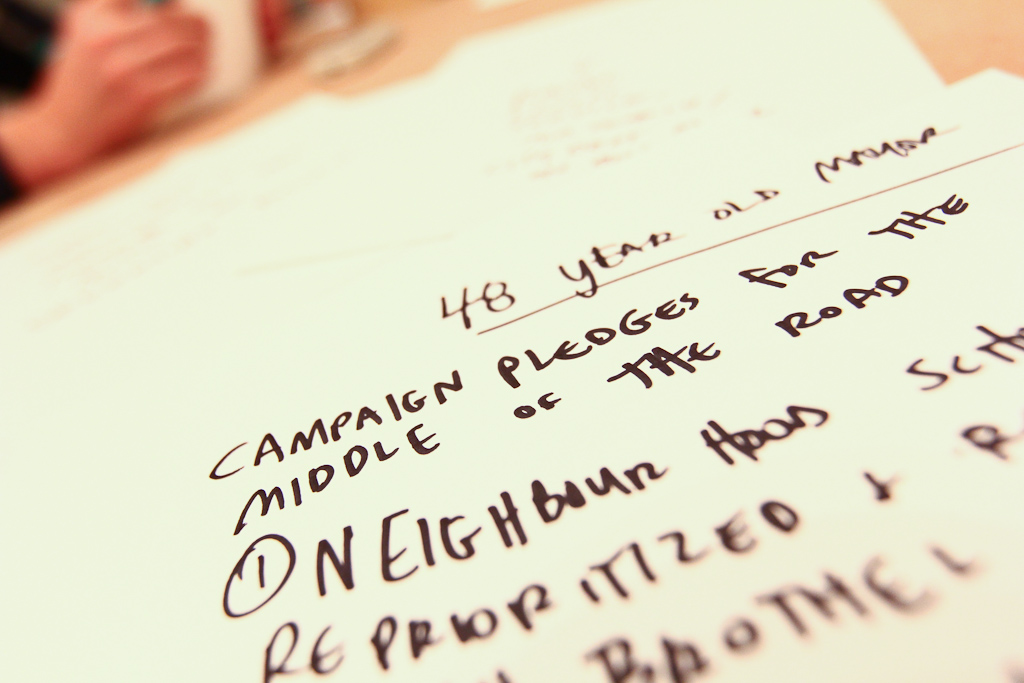 48 YEAR OLD MAYOR
CAMPAIGN PLEDGES FOR THE
MIDDLE OF THE ROAD
① NEIGHBOUR HOODS
REPRIORITIZED +
BROTHEL